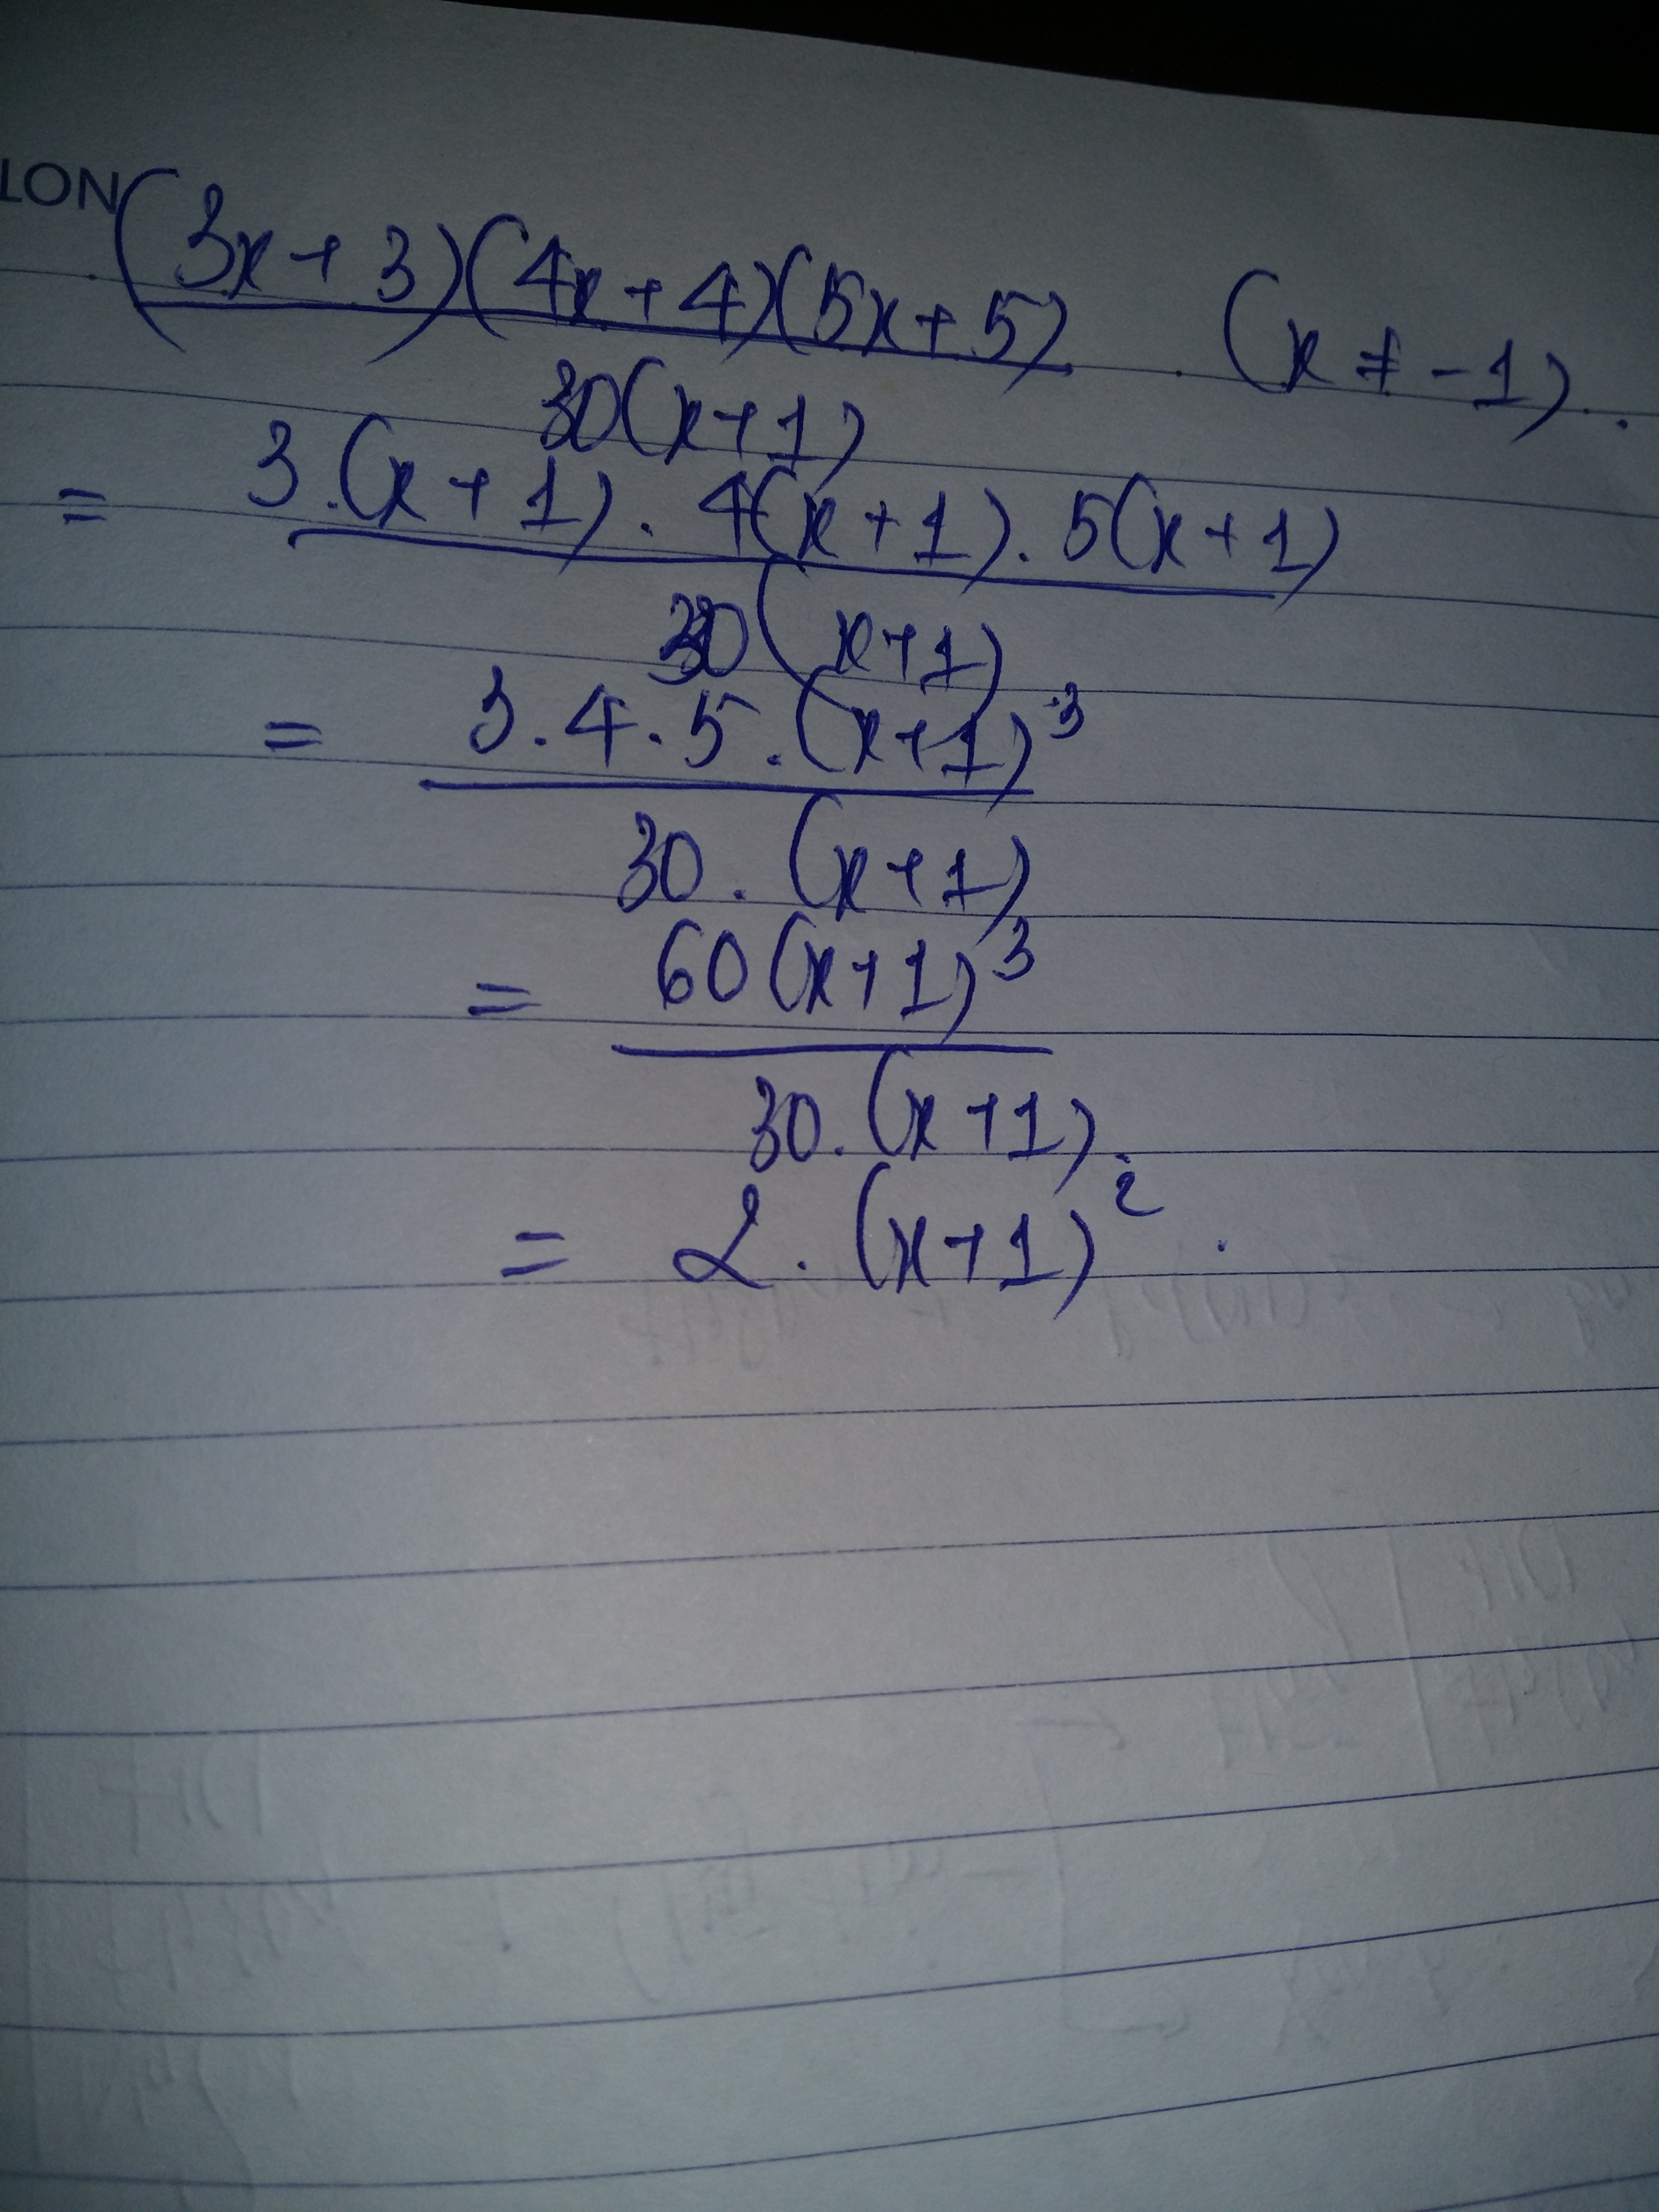 LON
(3x+3)(4x+4)(5x+5) (x ≠ -1).
30(x+1)
= 3.(x+1).4(x+1).5(x+1)
30(x+1)
= 3.4.5.(x+1)³
30.(x+1)
= 60(x+1)³
30.(x+1).
= 2.(x+1)².